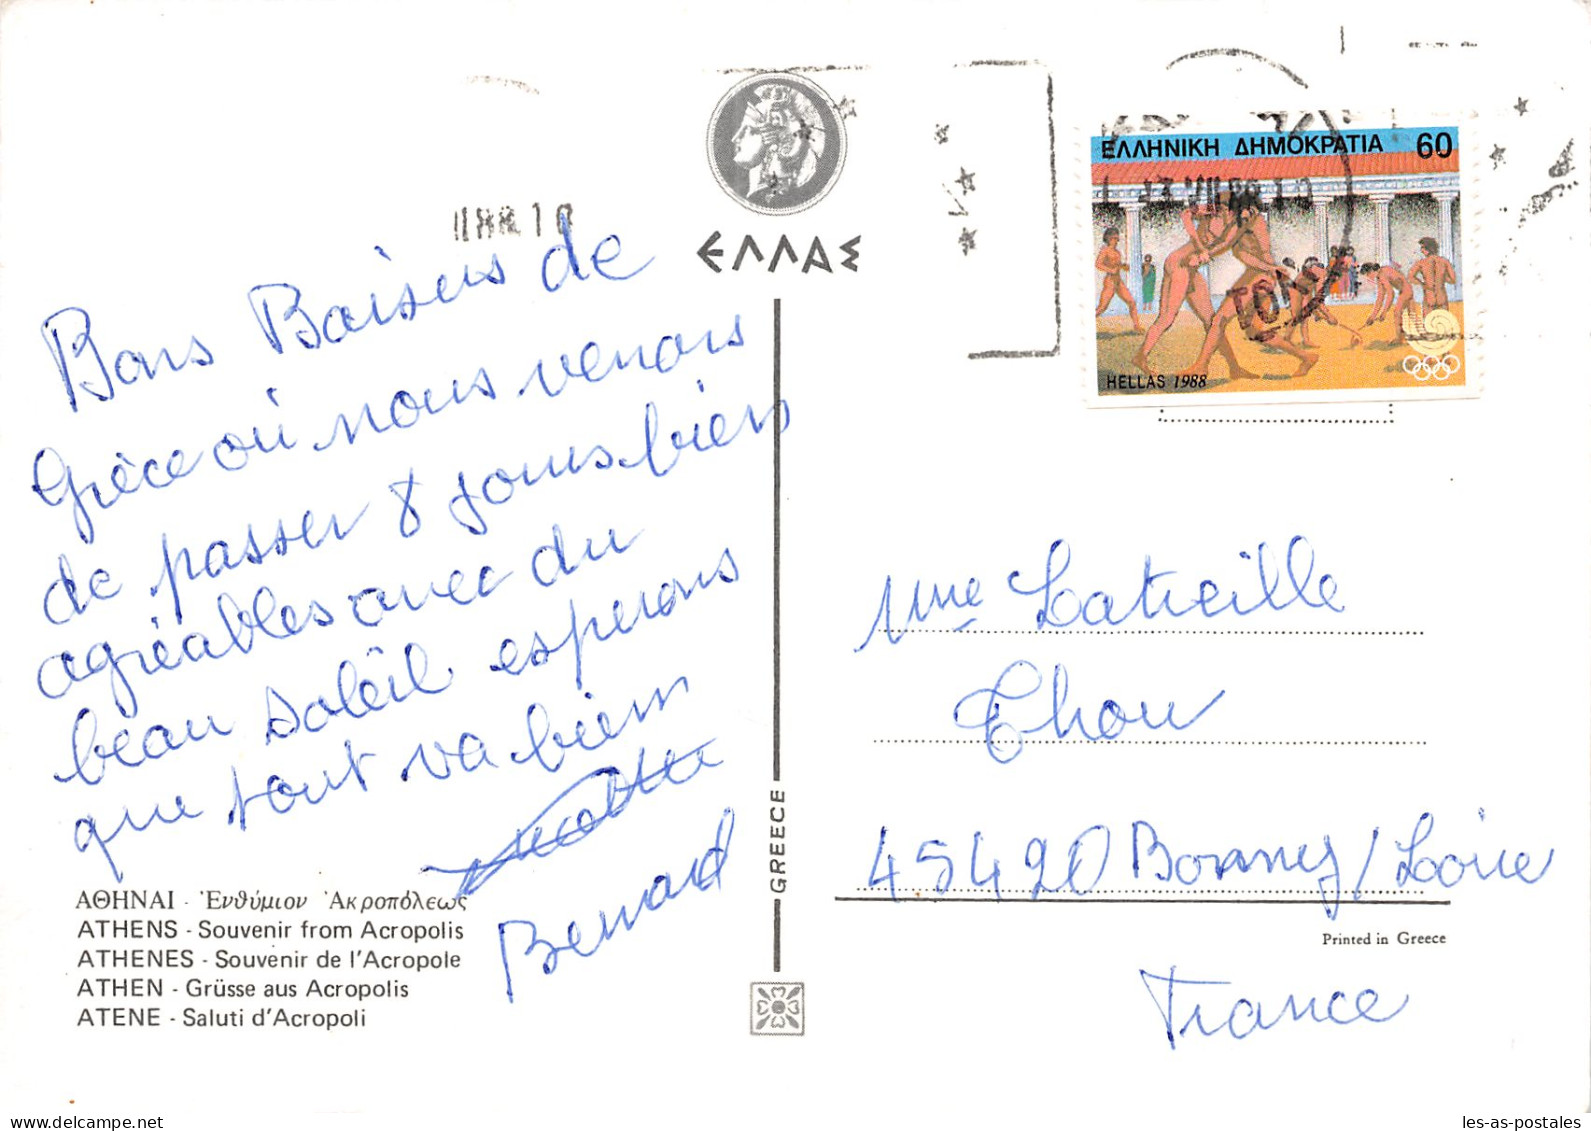 ΕΛΛΑΣ
ΕΛΛΗΝΙΚΗ ΔΗΜΟΚΡΑΤΙΑ 60
HELLAS 1988
Bons Baisers de
Grèce où nous venons
de passer 8 jours bien
agréables avec du
beau soleil esperons
que tout va bien
Bernard
ΑΘΗΝΑΙ - Ἐνθύμιον Ἀκροπόλεως
ATHENS - Souvenir from Acropolis
ATHENES - Souvenir de l'Acropole
ATHEN - Grüsse aus Acropolis
ATENE - Saluti d'Acropoli
GREECE
Mme Latreille
Thou
45420 Bonny/Loire
Printed in Greece
France
les-as-postales